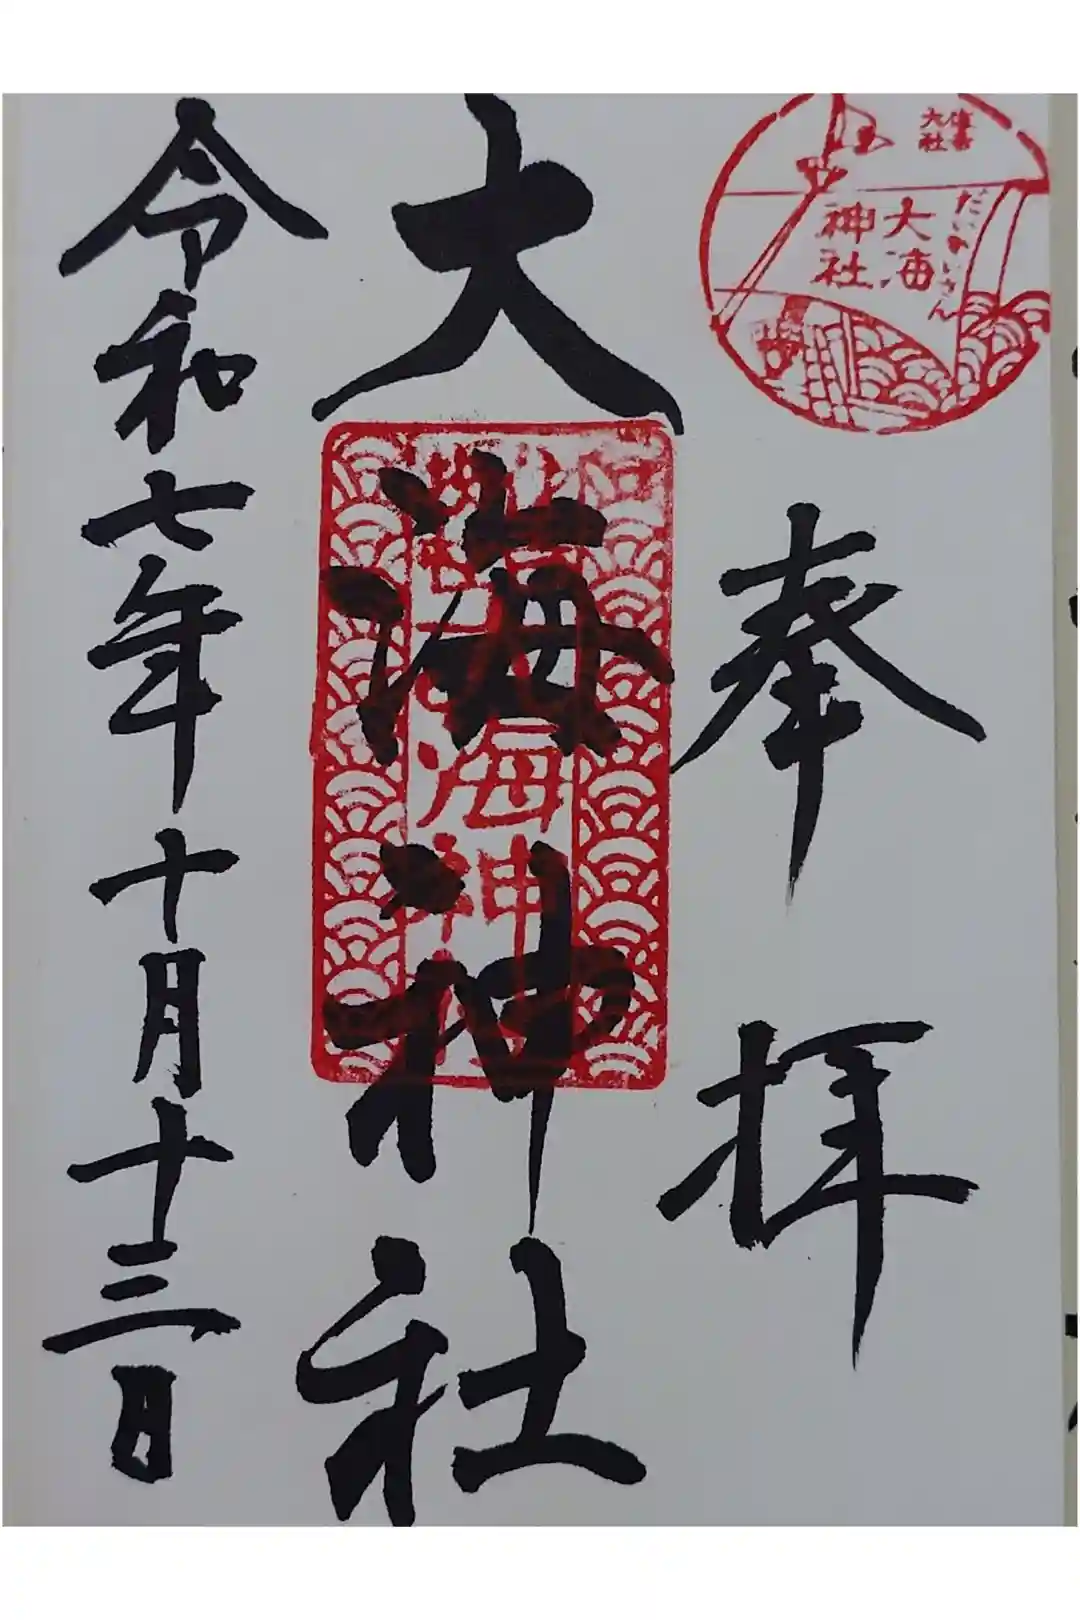 奉拝
住吉
大社
だいかいさん
大海
神社
大海神社
大海神
令和七年十月十三日